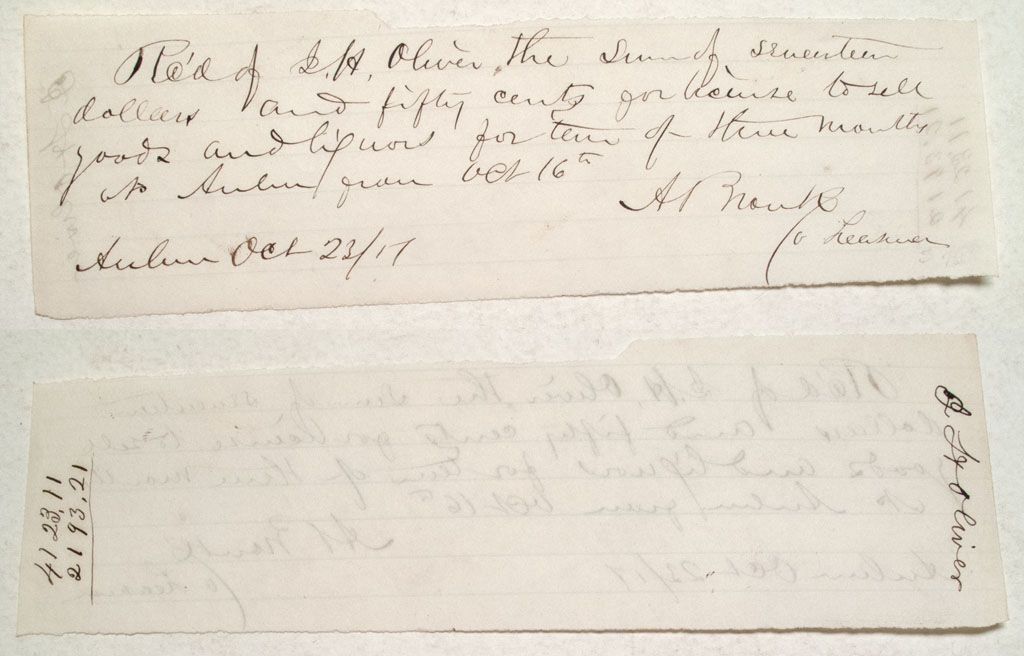 Rec'd of S. H. Oliver the sum of seventeen
dollars and fifty cents for license to sell
goods and liquors for term of three months
at Auburn from Oct 16th
A P Brown
Co Treasurer
Auburn Oct 23/17
H Oliver
4123,11
2193.21